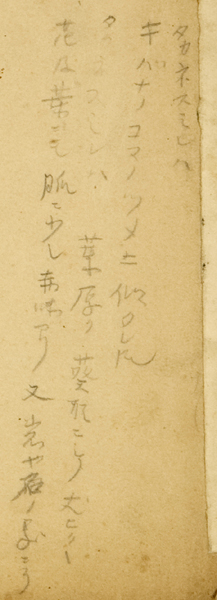 タカネスミレハ
キバナノコマノツメニ似タレ𪜈
タカネスミレハ 葉厚ク 葵形ニシテ 大ピク
花及葉ニモ 脈ニ少シ 赤味アリ 又 岩や石ノ